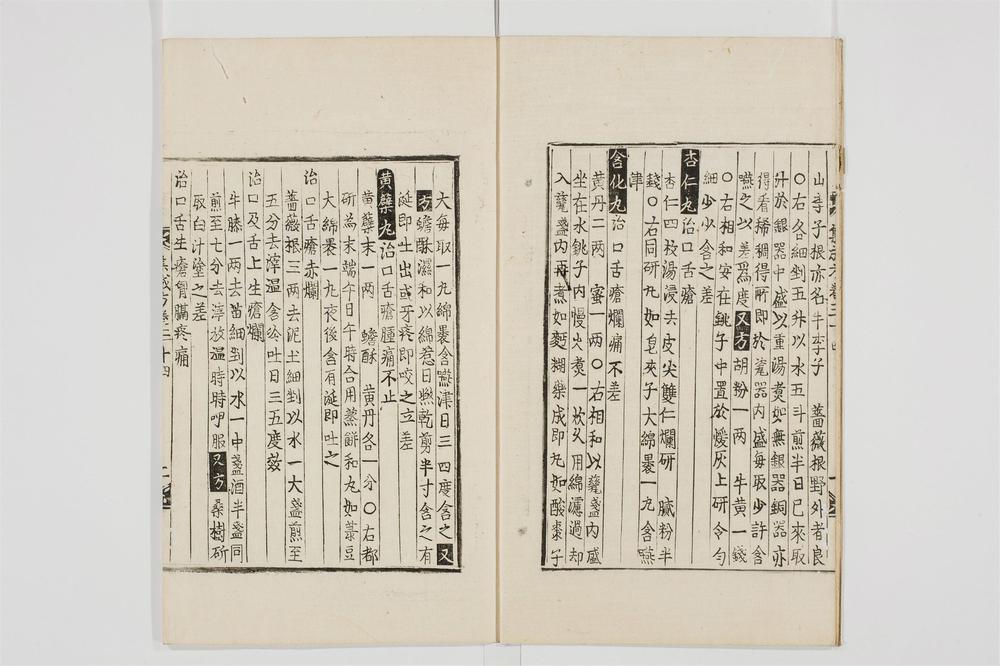 山李子根亦名牛李子 薔薇根野外者良
〇右各細剉五升以水五斗煎半日已來取
汁於銀器中盛以重湯煮如無銀器銅器亦
得看稀稠得所即於瓷器內盛每取少許含
嚥之以差爲度又方胡粉一兩 牛黃一錢
〇右相和安在銚子中置於煖灰上研令勻
細少少含之差
杏仁丸治口舌瘡
杏仁四枝湯浸去皮尖雙仁爛研 膩粉半
錢〇右同研丸如皂莢子大綿裹一丸含嚥
津
含化丸治口舌瘡爛痛不差
黃丹二兩 蜜一兩〇右相和以甆盞內盛
坐在水銚子內慢火煮一炊久用綿濾過却
入甆盞內再煮如麪糊藥成即丸如酸棗子
大每取一丸綿裹含嚥津日三四度含之又
方蟾酥濕和以綿惹日㬠乾剪半寸含之有
涎即生出或牙疼即咬之立差
黃蘗丸治口舌瘡腫痛不止
黃蘗末一兩 蟾酥 黃丹各一分〇右都
研為末端午日午時合用蒸餅和丸如菉豆
大綿裹一丸夜後含有涎即吐之
治口舌瘡赤爛
薔薇根三兩去泥土細剉以水一大盞煎至
五分去滓溫含冷吐日三五度效
治口及舌上生瘡爛
牛膝一兩去苗細剉以水一中盞酒半盞同
煎至七分去滓放溫時時呷服又方桑樹斫
取白汁塗之差
治口舌生瘡胷膈疼痛